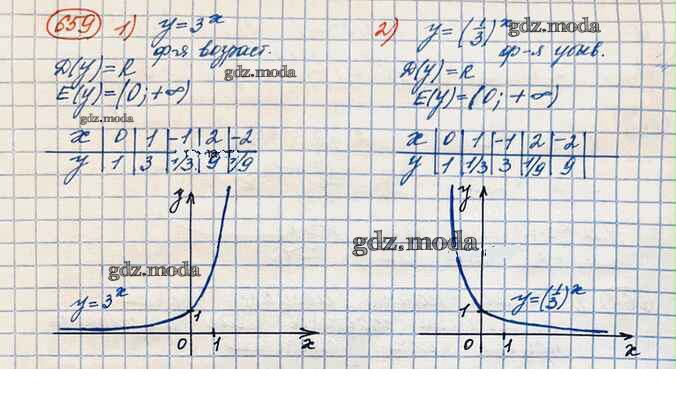 659 1) y = 3^x
ф-я возраст.
gdz.moda
D(y) = R
E(y) = (0; +∞)
gdz.moda
x | 0 | 1 | -1 | 2 | -2
y | 1 | 3 | 1/3 | 9 | 1/9
y
gdz.moda
y = 3^x
1
0 1 x
2) y = (1/3)^x
gdz.moda
ф-я убыв.
D(y) = R
E(y) = (0; +∞)
x | 0 | 1 | -1 | 2 | -2
y | 1 | 1/3 | 3 | 1/9 | 9
y
gdz.moda
y = (1/3)^x
1
0 1 x